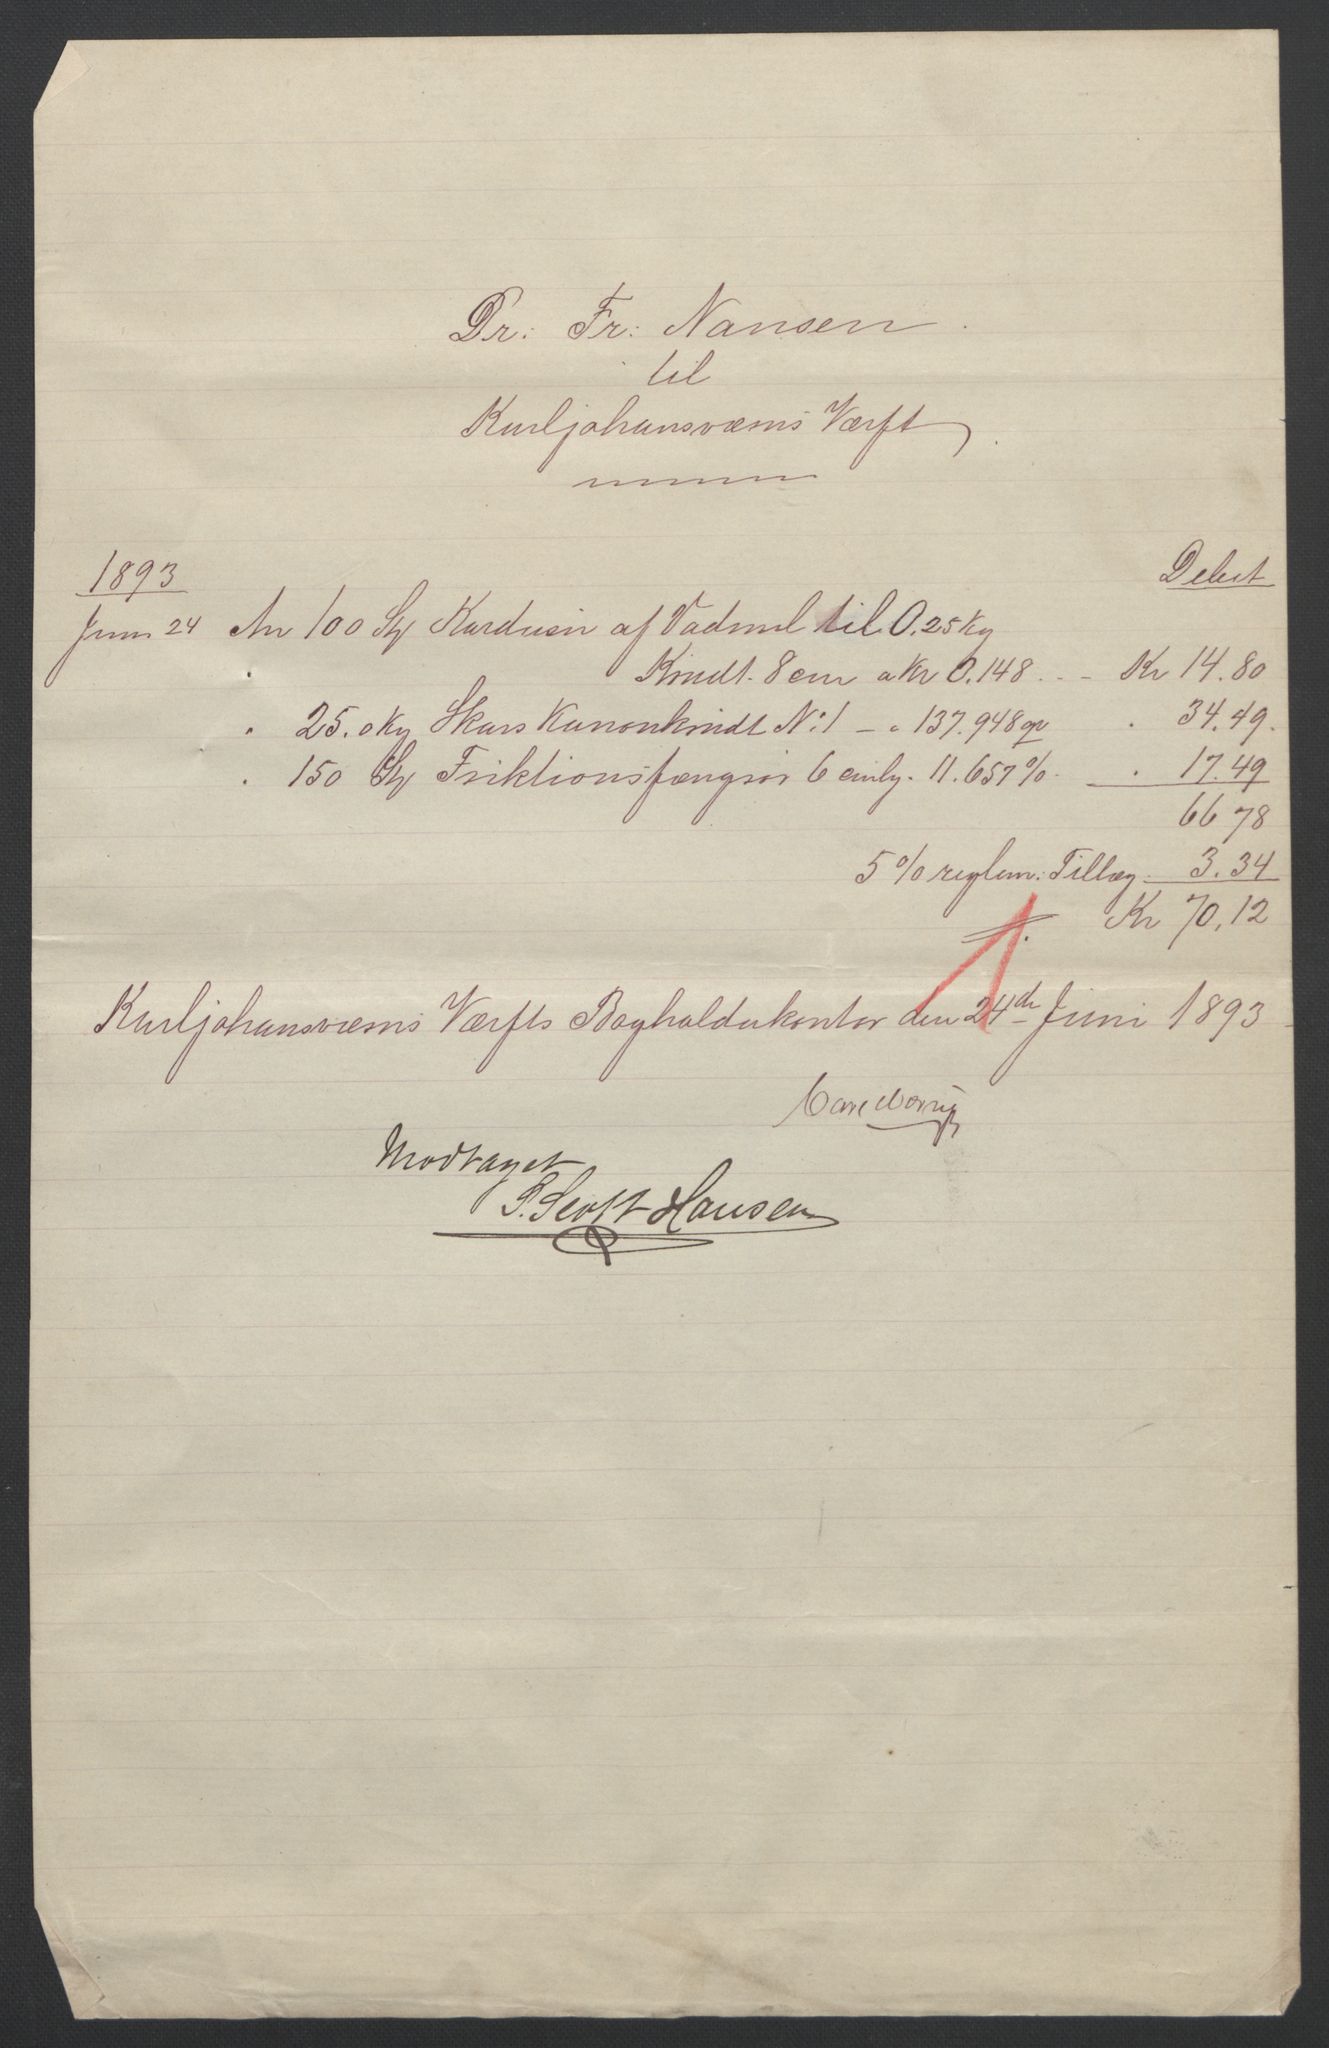 Dr: Fr: Nansen.
til
Karljohansværns Værft
1893
Debet
Juni 24 An 100 St Karduser af Vadmel til 0.25 Kg
Krudt. 8 cm a Kr 0.148 . . - Kr 14.80
" 25.0 Kg Skars Kanonkrudt No: 1 - " 137.948 " 34.49.
" 150 St Friktionsfængrør 6 cm lg. 11.657 % " 17.49
66 78
5 % reglem: Tillæg. 3.34
Kr 70,12
Karljohansværns Værfts Boghalderkontor den 24de Juni 1893
Modtaget
S. Scott Hansen